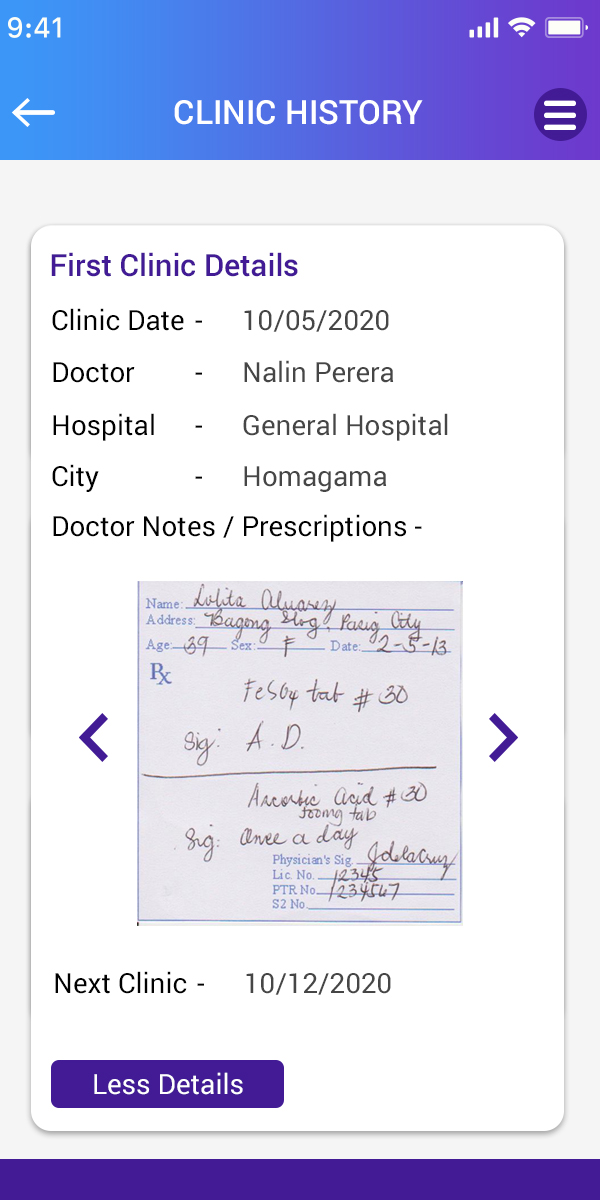 9:41
CLINIC HISTORY
First Clinic Details
Clinic Date - 10/05/2020
Doctor - Nalin Perera
Hospital - General Hospital
City - Homagama
Doctor Notes / Prescriptions -
Name: Lolita Alvarez
Address: Bagong Ilog, Pasig City
Age: 39 Sex: F Date: 2-5-13
Rx
FeSO4 tab # 30
Sig: A.D.
Ascorbic Acid # 30
500mg tab
Sig: Once a day
Physician's Sig. JdelaCruz
Lic. No. 12345
PTR No. 1234567
S2 No.
Next Clinic - 10/12/2020
Less Details